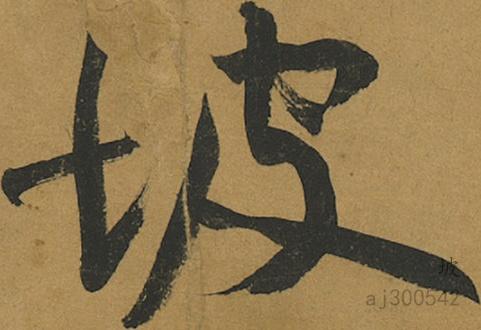 坡
坡
aj300542